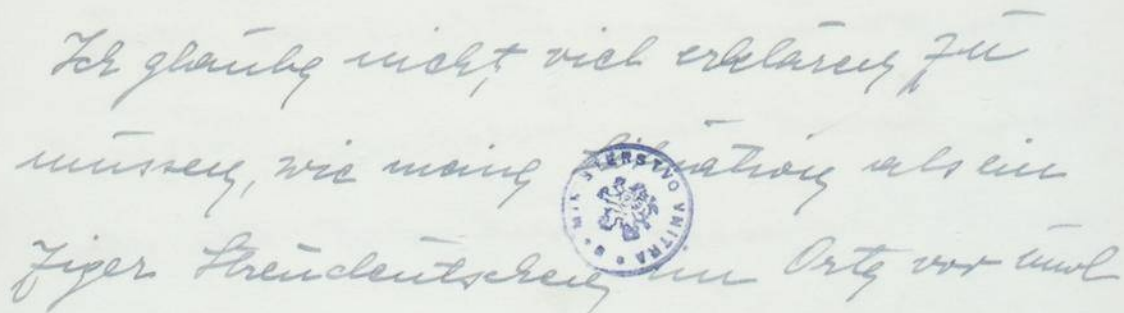 Ich glaube nicht, viel erklären zu
müssen, wie meine Situation als ein
ziger Streudeutschen im Orte vor und
MINISTERSTVO VNITRA